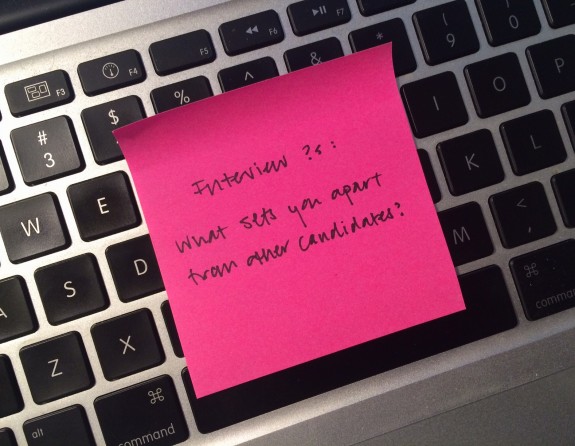 F3
F4
F5
F6
F7
#
3
$
%
^
&
*
(
9
)
0
W
E
I
O
P
A
S
D
K
L
Z
X
M
<
,
command
alt
command
Interview ?s:
What sets you apart
from other candidates?